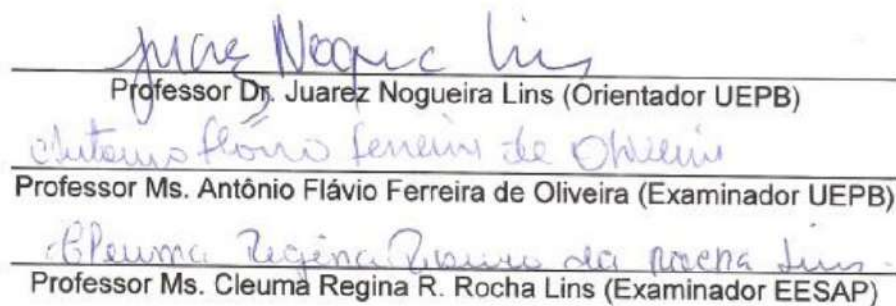 Juarez Nogueira Lins
Professor Dr. Juarez Nogueira Lins (Orientador UEPB)
Antonio Flávio Ferreira de Oliveira
Professor Ms. Antônio Flávio Ferreira de Oliveira (Examinador UEPB)
Cleuma Regina Ribeiro da Rocha Lins
Professor Ms. Cleuma Regina R. Rocha Lins (Examinador EESAP)